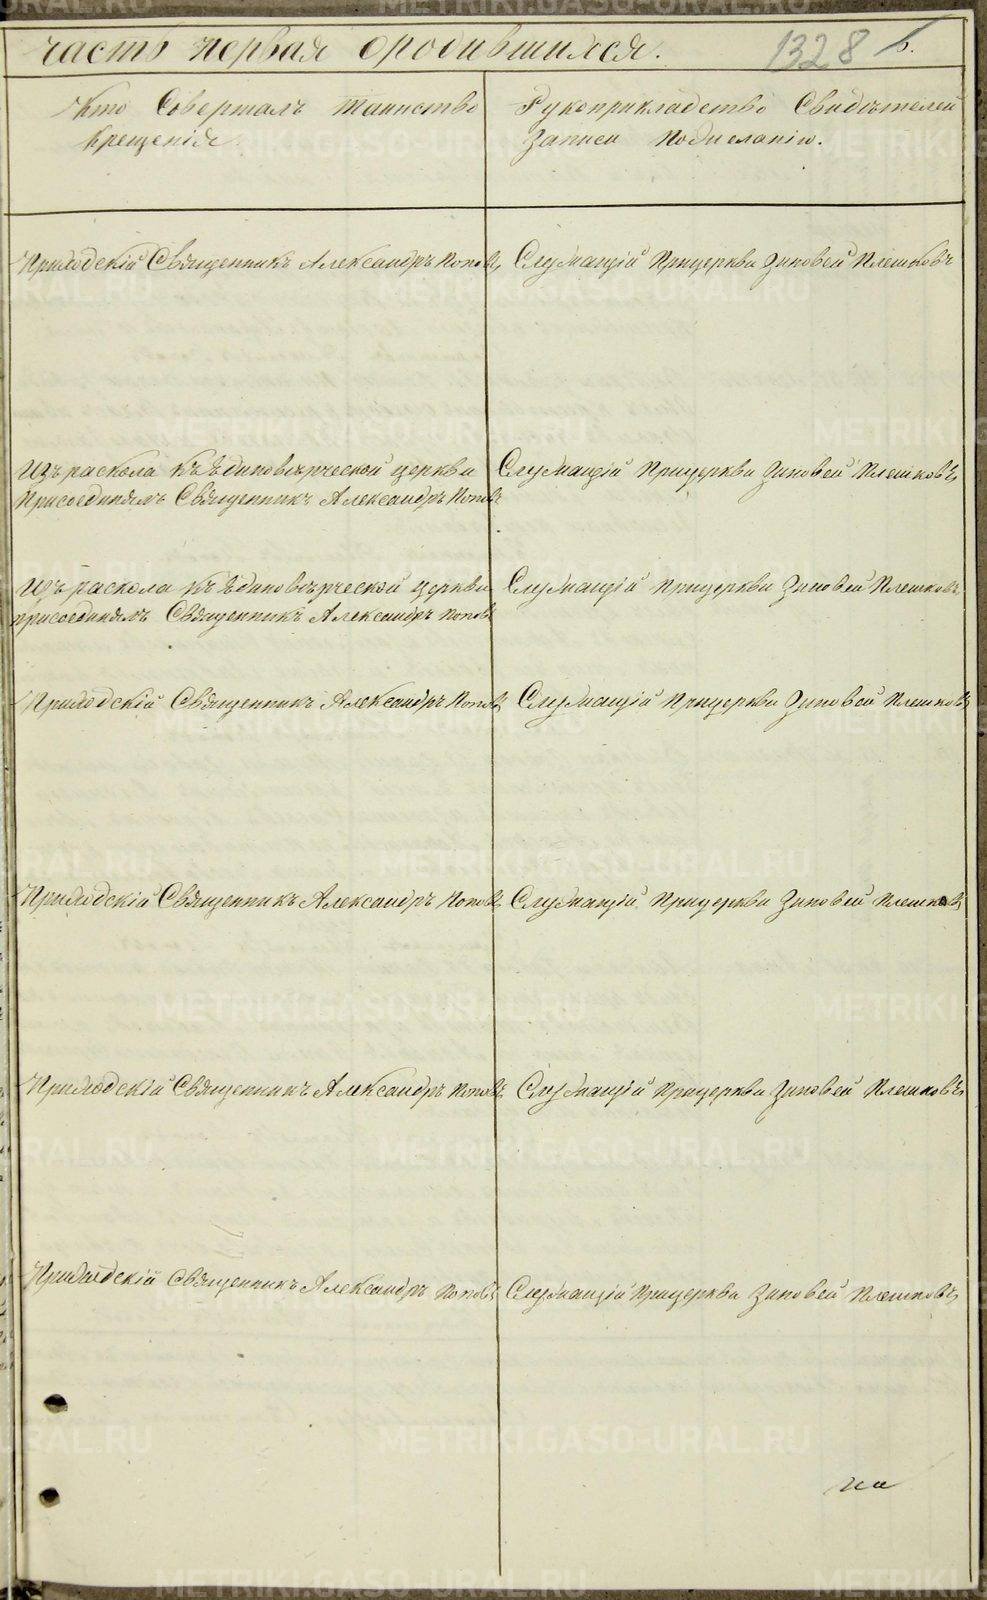 часть первая о родившихся.
1328
6.
Кто Совершалъ таинство
крещенія.
Рукоприкладство Свидѣтелей
Записи по желанію.
Приходскій Священникъ Александръ Поповъ
Служащій При церкви Зиновей Плешковъ
Изъ раскола къ Единоверческой церкви
Присоединялъ Священникъ Александръ Поповъ
Служащій При церкви Зиновей Плешковъ
Изъ раскола къ Единоверческой церкви
присоединялъ Священникъ Александръ Поповъ
Служащій При церкви Зиновей Плешковъ
Приходскій Священникъ Александръ Поповъ
Служащій При церкви Зиновей Плешковъ
Приходскій Священникъ Александръ Поповъ
Служащій При церкви Зиновей Плешковъ
Приходскій Священникъ Александръ Поповъ
Служащій При церкви Зиновей Плешковъ
Приходскій Священникъ Александръ Поповъ
Служащій При церкви Зиновей Плешковъ
METRIKI.GASO-URAL.RU